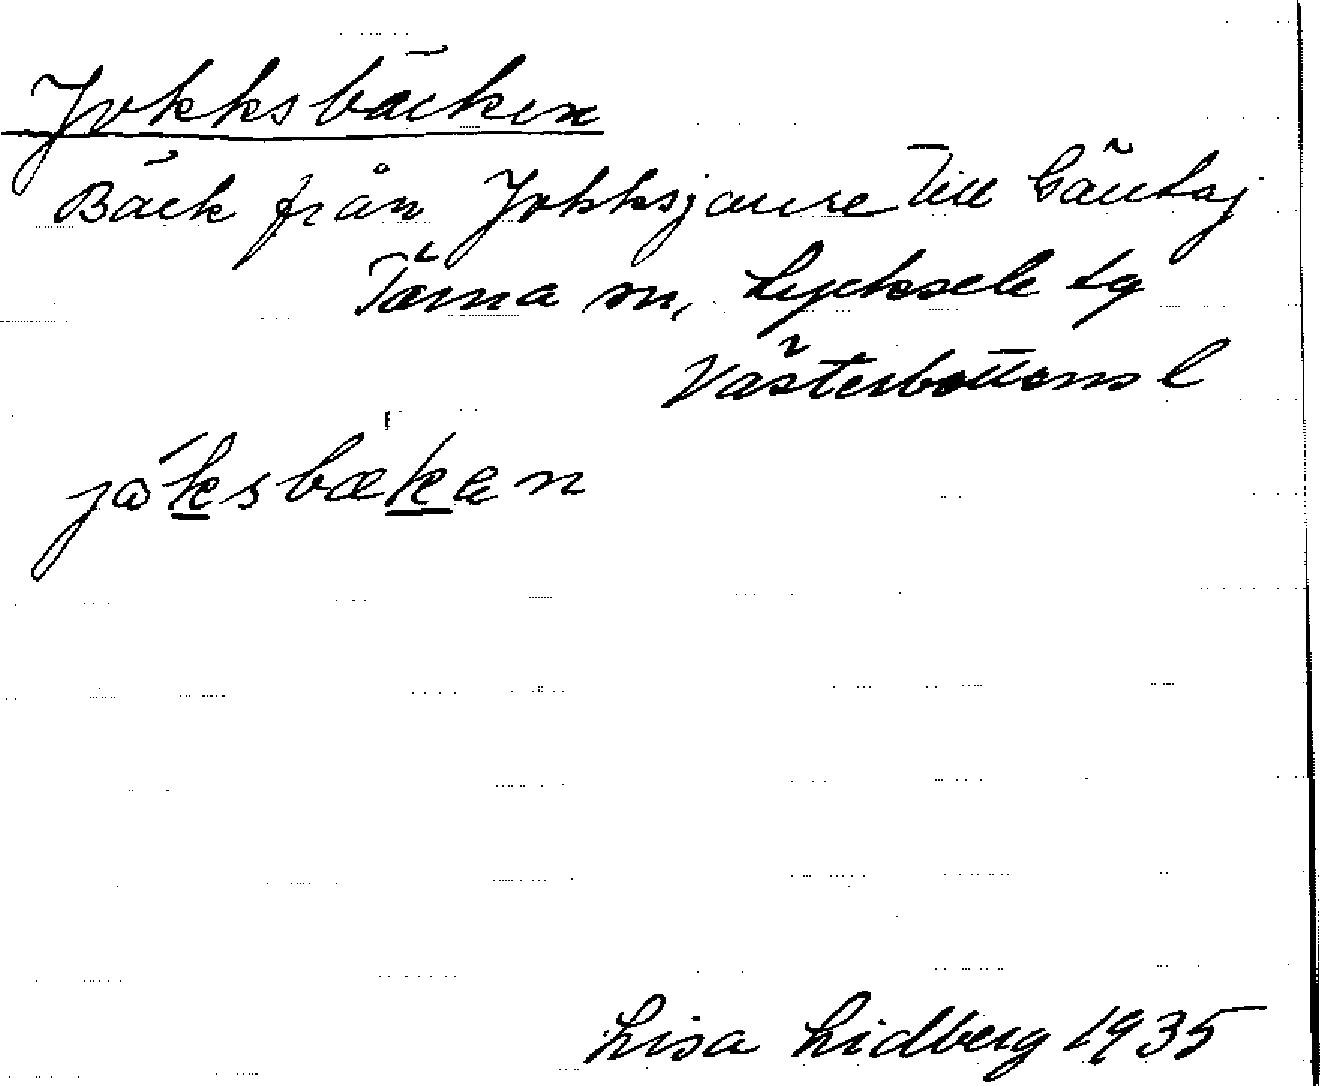 Jokksbäcken
Bäck från Jokksjaure till Gäutsj
Tärna sn, Lycksele lg
Västerbottens l
jåksbækæn
Lisa Lidberg 1935